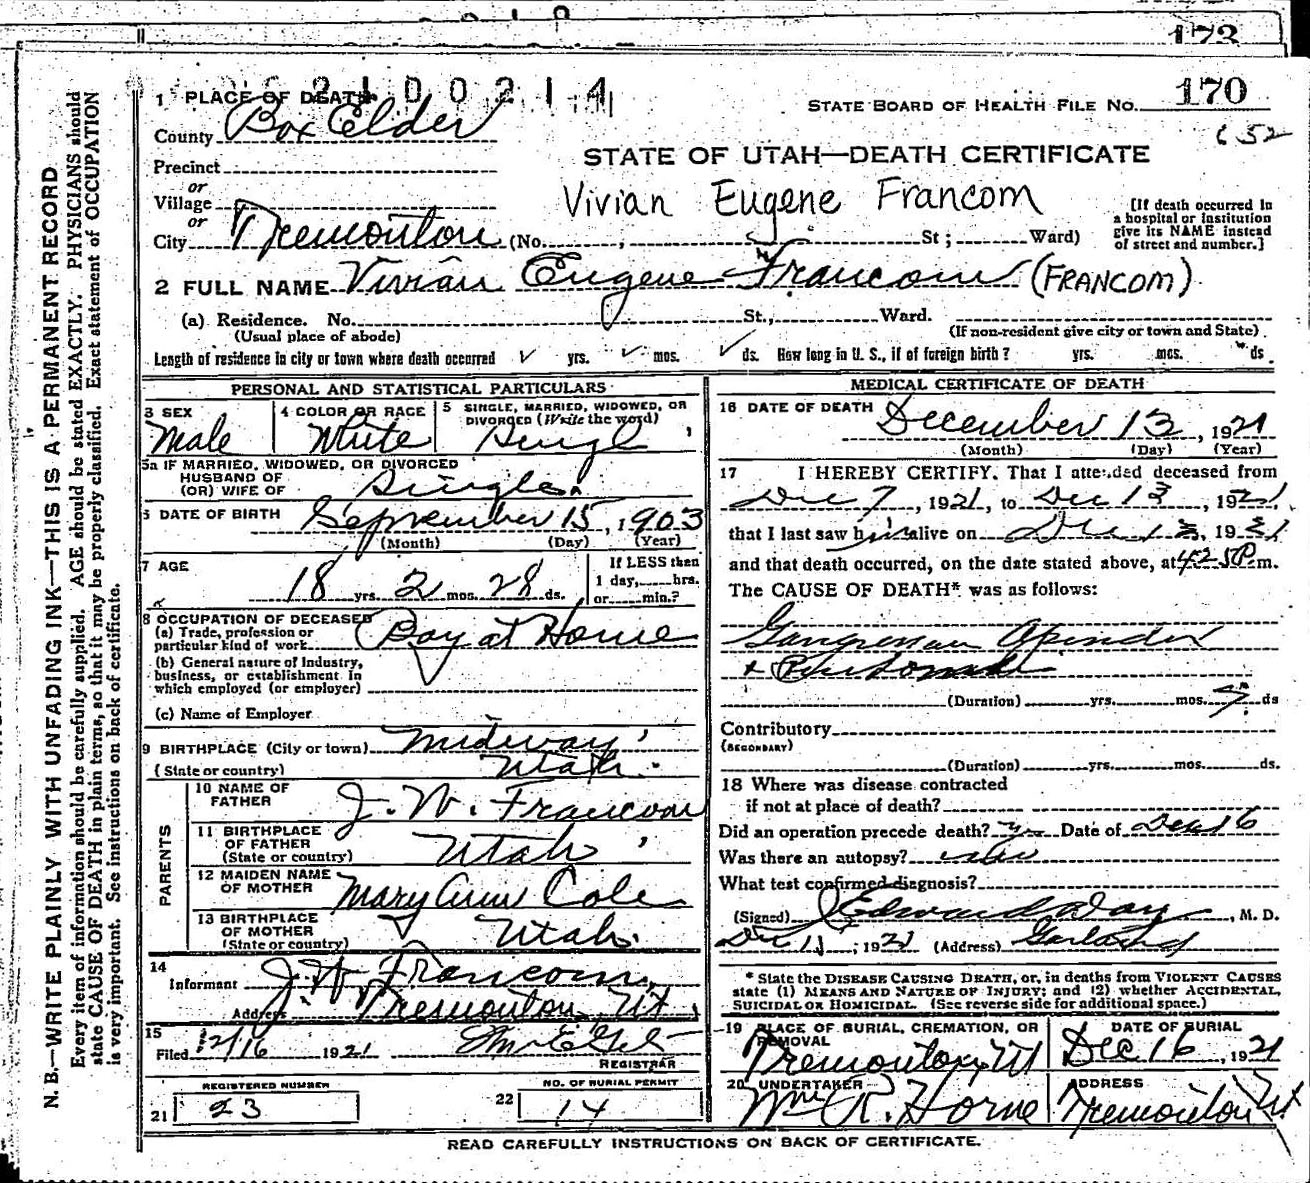 173
2100214
170
STATE BOARD OF HEALTH FILE No.
652
1 PLACE OF DEATH
County Box Elder
STATE OF UTAH—DEATH CERTIFICATE
Precinct
or
Village
Vivian Eugene Francom
or
City Tremonton (No. , St; Ward)
[If death occurred in
a hospital or institution
give its NAME instead
of street and number.]
2 FULL NAME Vivian Eugene Francom (FRANCOM)
(a) Residence. No. St., Ward.
(Usual place of abode) (If non-resident give city or town and State)
Length of residence in city or town where death occurred ✓ yrs. ✓ mos. ✓ ds. How long in U. S., if of foreign birth? yrs. mos. ds.
PERSONAL AND STATISTICAL PARTICULARS
3 SEX
Male
4 COLOR OR RACE
White
5 SINGLE, MARRIED, WIDOWED, OR
DIVORCED (Write the word)
Single
5a IF MARRIED, WIDOWED, OR DIVORCED
HUSBAND OF
(OR) WIFE OF Single
6 DATE OF BIRTH September 15, 1903
(Month) (Day) (Year)
7 AGE
18 yrs. 2 mos. 28 ds.
If LESS than
1 day, hrs.
or min.?
8 OCCUPATION OF DECEASED
(a) Trade, profession or
particular kind of work Boy at Home
(b) General nature of industry,
business, or establishment in
which employed (or employer)
(c) Name of Employer
9 BIRTHPLACE (City or town) Midway
(State or country) Utah
PARENTS
10 NAME OF
FATHER J. W. Francom
11 BIRTHPLACE
OF FATHER
(State or country) Utah
12 MAIDEN NAME
OF MOTHER Mary Ann Cole
13 BIRTHPLACE
OF MOTHER
(State or country) Utah
14
Informant J. W. Francom
Address Tremonton, Ut
15
Filed 12/16 1921
REGISTRAR
REGISTERED NUMBER
21 23
NO. OF BURIAL PERMIT
22 14
MEDICAL CERTIFICATE OF DEATH
16 DATE OF DEATH December 13, 1921
(Month) (Day) (Year)
17 I HEREBY CERTIFY. That I attended deceased from
Dec 7, 1921, to Dec 13, 1921,
that I last saw him alive on Dec 13, 1921
and that death occurred, on the date stated above, at 425P m.
The CAUSE OF DEATH* was as follows:
(Duration) yrs. mos. 7 ds
Contributory
(SECONDARY)
(Duration) yrs. mos. ds.
18 Where was disease contracted
if not at place of death?
Did an operation precede death? yes Date of Dec 16
Was there an autopsy?
What test confirmed diagnosis?
(Signed) Edward Day, M. D.
Dec 11, 1921 (Address) Garland
* State the DISEASE CAUSING DEATH, or, in deaths from VIOLENT CAUSES
state (1) MEANS AND NATURE OF INJURY; and (2) whether ACCIDENTAL,
SUICIDAL OR HOMICIDAL. (See reverse side for additional space.)
19 PLACE OF BURIAL, CREMATION, OR
REMOVAL
Tremonton Ut
DATE OF BURIAL
Dec. 16, 1921
20 UNDERTAKER
Wm R. Horne
ADDRESS
Tremonton Ut
READ CAREFULLY INSTRUCTIONS ON BACK OF CERTIFICATE.
N. B.—WRITE PLAINLY WITH UNFADING INK—THIS IS A PERMANENT RECORD
Every item of information should be carefully supplied. AGE should be stated EXACTLY. PHYSICIANS should
state CAUSE OF DEATH in plain terms, so that it may be properly classified. Exact statement of OCCUPATION
is very important. See instructions on back of certificate.